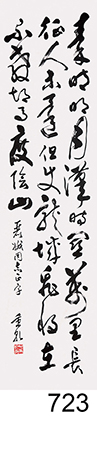 秦时明月汉时关万里长
征人未还但使龙城飞将在
不教胡马度阴山
723